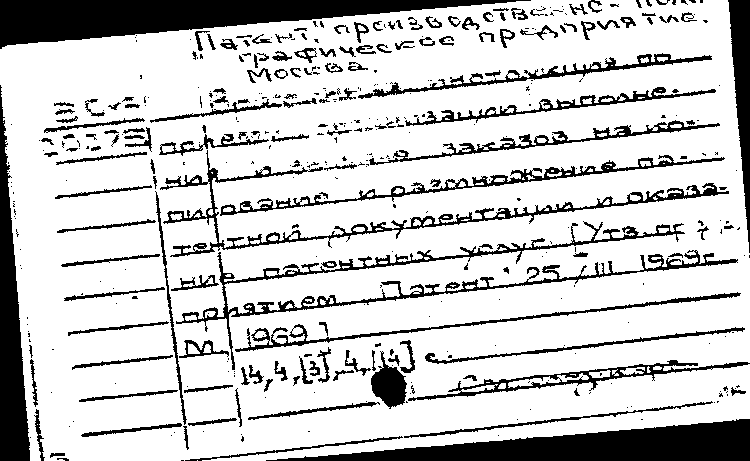 "Патент", производственно-поли
графическое предприятие.
Москва.
инструкция по
приему, организации выполне-
ния и заказов на ко-
пирование и размножение па-
тентной документации и оказа-
ние патентных услуг. [Утв.
приятием "Патент" 25/III 1969г.
М., 1969]
14,4,[3],4,[14] с.
См. след. карт.